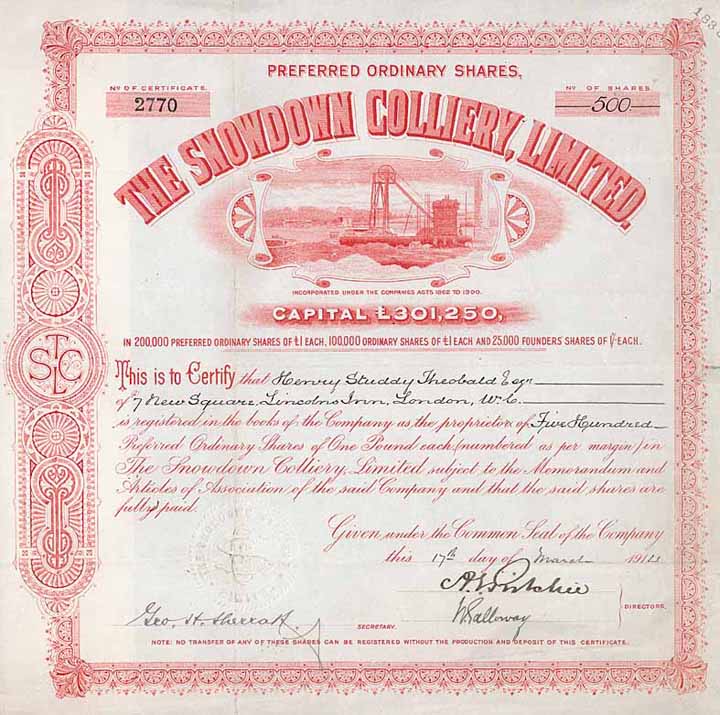 PREFERRED ORDINARY SHARES,
No OF CERTIFICATE.
2770
No OF SHARES
500
THE SNOWDOWN COLLIERY, LIMITED.
INCORPORATED UNDER THE COMPANIES ACTS 1862 TO 1900.
CAPITAL £301,250,
IN 200,000 PREFERRED ORDINARY SHARES OF £1 EACH, 100,000 ORDINARY SHARES OF £1 EACH AND 25,000 FOUNDERS SHARES OF 1/- EACH.
TSCL
This is to Certify that Henry Studdy Theobald Esqre
of 7 New Square, Lincolns Inn, London, W.C.
is registered in the books of the Company as the proprietor of Five Hundred
Preferred Ordinary Shares of One Pound each (numbered as per margin) in
The Snowdown Colliery, Limited subject to the Memorandum and
Articles of Association of the said Company and that the said shares are
fully paid.
Given under the Common Seal of the Company
this 17th day of March 191
A. E. Ritchie
W Galloway
DIRECTORS.
Geo. H. Sherratt
SECRETARY.
NOTE: NO TRANSFER OF ANY OF THESE SHARES CAN BE REGISTERED WITHOUT THE PRODUCTION AND DEPOSIT OF THIS CERTIFICATE.